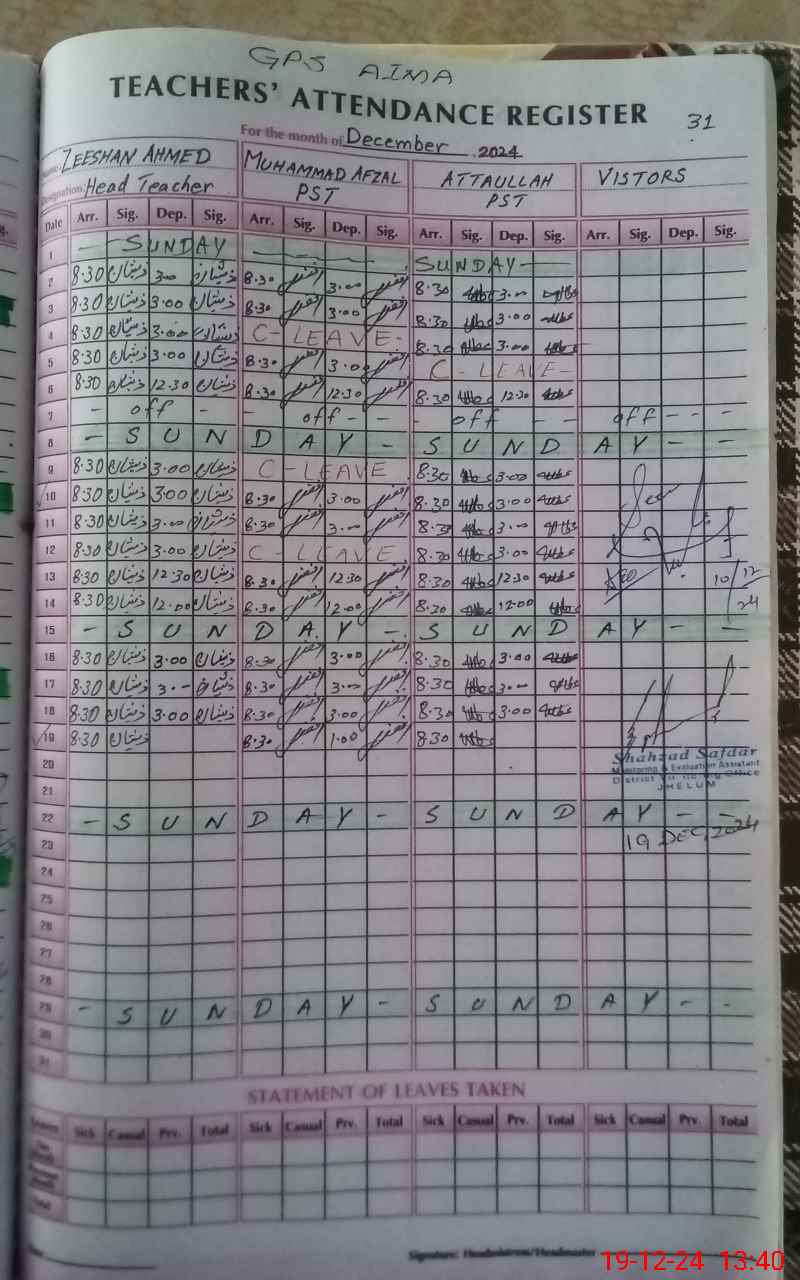 GPS AIMA
TEACHERS' ATTENDANCE REGISTER 31
For the month of December 2024
Name: ZEESHAN AHMED MUHAMMAD AFZAL ATTAULLAH VISTORS
Designation: Head Teacher PST PST
Date Arr. Sig. Dep. Sig. Arr. Sig. Dep. Sig. Arr. Sig. Dep. Sig. Arr. Sig. Dep. Sig.
1 - SUNDAY SUNDAY -
2 8.30 ذیشان 3.00 ذیشان 8.30 3.00 8.30 3.00
3 8.30 ذیشان 3.00 ذیشان 8.30 3.00 8.30 3.00
4 8.30 ذیشان 3.00 ذیشان C-LEAVE- 8.30 3.00
5 8.30 ذیشان 3.00 ذیشان 8.30 3.00 C-LEAVE-
6 8.30 ذیشان 12.30 ذیشان 8.30 12.30 8.30 12.30
7 - off - - off - - off - - off - -
8 - SUNDAY - SUNDAY - -
9 8.30 ذیشان 3.00 ذیشان C-LEAVE 8.30 3.00
10 8.30 ذیشان 3.00 ذیشان 8.30 3.00 8.30 3.00
11 8.30 ذیشان 3.00 ذیشان 8.30 3.00 8.30 3.00
12 8.30 ذیشان 3.00 ذیشان C-LEAVE 8.30 3.00
13 8.30 ذیشان 12.30 ذیشان 8.30 12.30 8.30 12.30 10/12
14 8.30 ذیشان 12.00 ذیشان 8.30 12.00 8.30 12.00 24
15 - SUNDAY - SUNDAY - -
16 8.30 ذیشان 3.00 ذیشان 8.30 3.00 8.30 3.00
17 8.30 ذیشان 3.00 ذیشان 8.30 3.00 8.30 3.00
18 8.30 ذیشان 3.00 ذیشان 8.30 3.00 8.30 3.00
19 8.30 ذیشان 8.30 1.00 8.30
Shahzad Safdar
Monitoring & Evaluation Assistant
20
District Office
JHELUM
21
22 - SUNDAY - SUNDAY - -
23 19 DEC, 2024
24
25
26
27
28
29 - SUNDAY - SUNDAY - -
30
31
STATEMENT OF LEAVES TAKEN
Sick Casual Prv. Total Sick Casual Prv. Total Sick Casual Prv. Total Sick Casual Prv. Total
Total
Signature: Headmistress/Headmaster
19-12-24 13:40